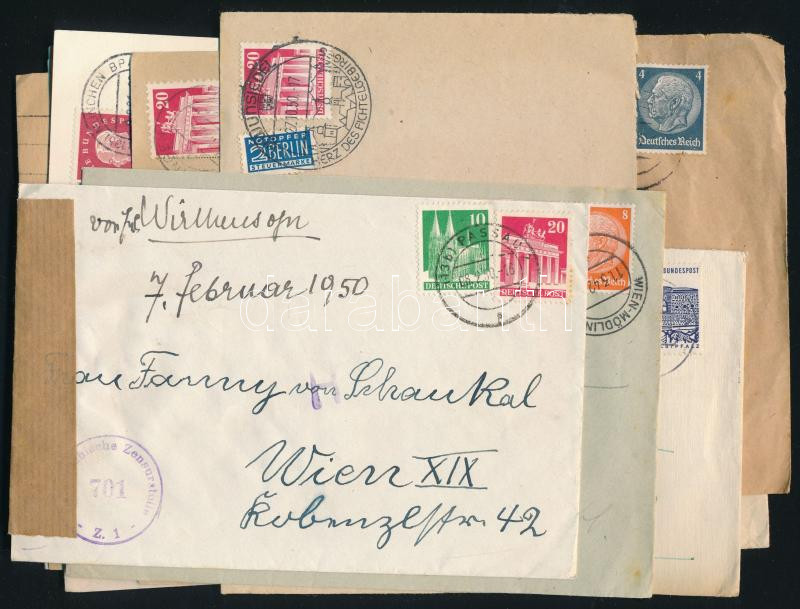 MÜNCHEN BP
20
20
DEUTSCHE POST
HERZ DES FICHTELGEBIRGES
NOTOPFER
2 BERLIN
STEUERMARKE
4
Deutsches Reich
7. Februar 1950
10
DEUTSCHE POST
20
DEUTSCHE POST
PASSAU
8
WIEN-MÖDLIN
BUNDESPOST
Frau Fanny von Schaukal
H
Wien XIX
Kobenzlstr. 42
Zensurstelle
701
Z. 1
darabanth